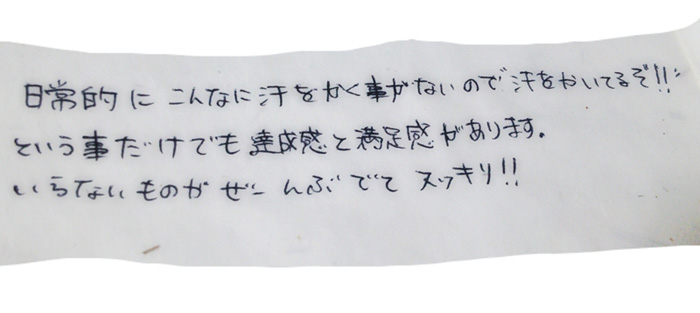 日常的に こんなに汗をかく事がないので汗をかいてるぞ!!
という事だけでも達成感と満足感があります。
いらないものがぜーんぶでて スッキリ!!